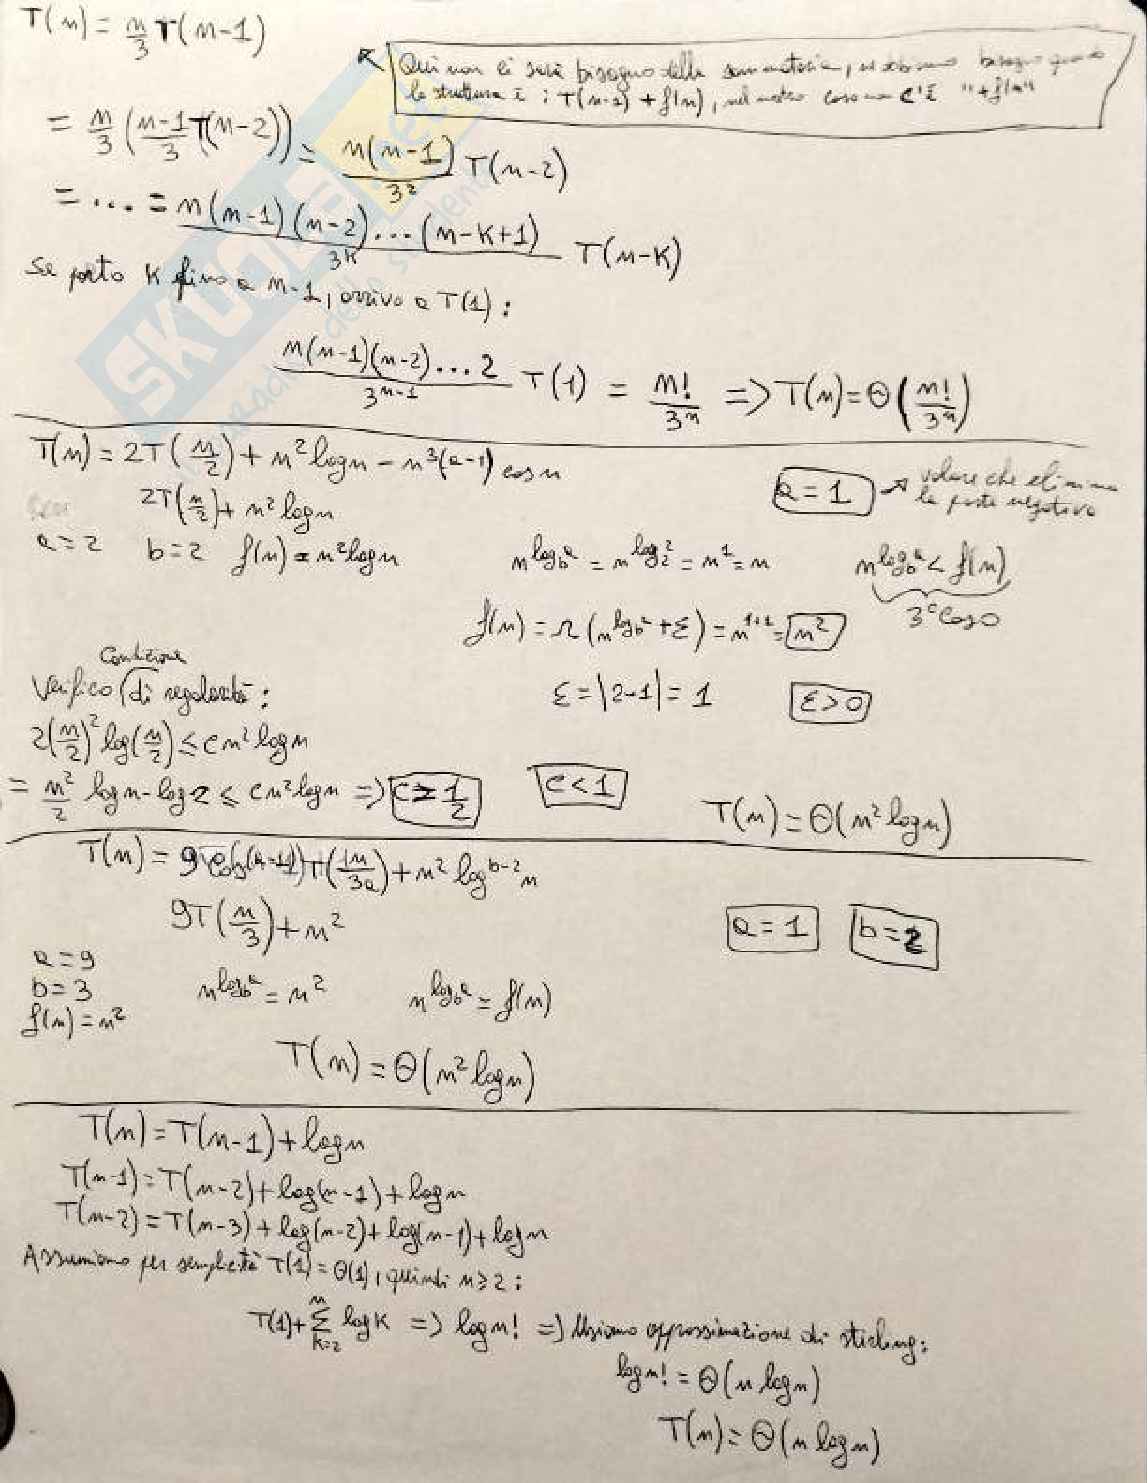 T(n) = n/3 T(n-1)
Qui non ci sarà bisogno della sommatoria, ne abbiamo bisogno quando
la struttura è : T(n-1) + f(n), nel nostro caso non c'è "+f(n)"
= n/3 (n-1/3 T(n-2)) = n(n-1)/3² T(n-2)
= ... = n(n-1)(n-2)...(n-k+1)/3^k T(n-k)
Se porto k fino a n-1, arrivo a T(1) :
n(n-1)(n-2)...2/3^(n-1) T(1) = n!/3^n => T(n) = Θ(n!/3^n)
T(n) = 2T(n/2) + n² log n - n^3(a-1) cos n
a = 1 → valore che elimina
la parte negativa
2T(n/2) + n² log n
a = 2 b = 2 f(n) = n² log n n^(log_b a) = n^(log_2 2) = n^1 = n n^(log_b a) < f(n)
3° Caso
f(n) = Ω(n^(log_b a + ε)) = n^(1+1) = n²
Condizione
Verifico di regolarità :
ε = |2-1| = 1 ε > 0
2(n/2)² log(n/2) ≤ c n² log n
= n²/2 log n - log 2 ≤ c n² log n => c ≥ 1/2 c < 1
T(n) = Θ(n² log n)
T(n) = 9 T(1n/3a) + n² log^(b-2) n
9T(n/3) + n² a = 1 b = 2
a = 9
b = 3 n^(log_b a) = n² n^(log_b a) = f(n)
f(n) = n²
T(n) = Θ(n² log n)
T(n) = T(n-1) + log n
T(n-1) = T(n-2) + log(n-1) + log n
T(n-2) = T(n-3) + log(n-2) + log(n-1) + log n
Assumiamo per semplicità T(1) = Θ(1), quindi n ≥ 2 :
T(1) + Σ_(k=2)^n log k => log n! => Usiamo approssimazione di stirling :
log n! = Θ(n log n)
T(n) = Θ(n log n)